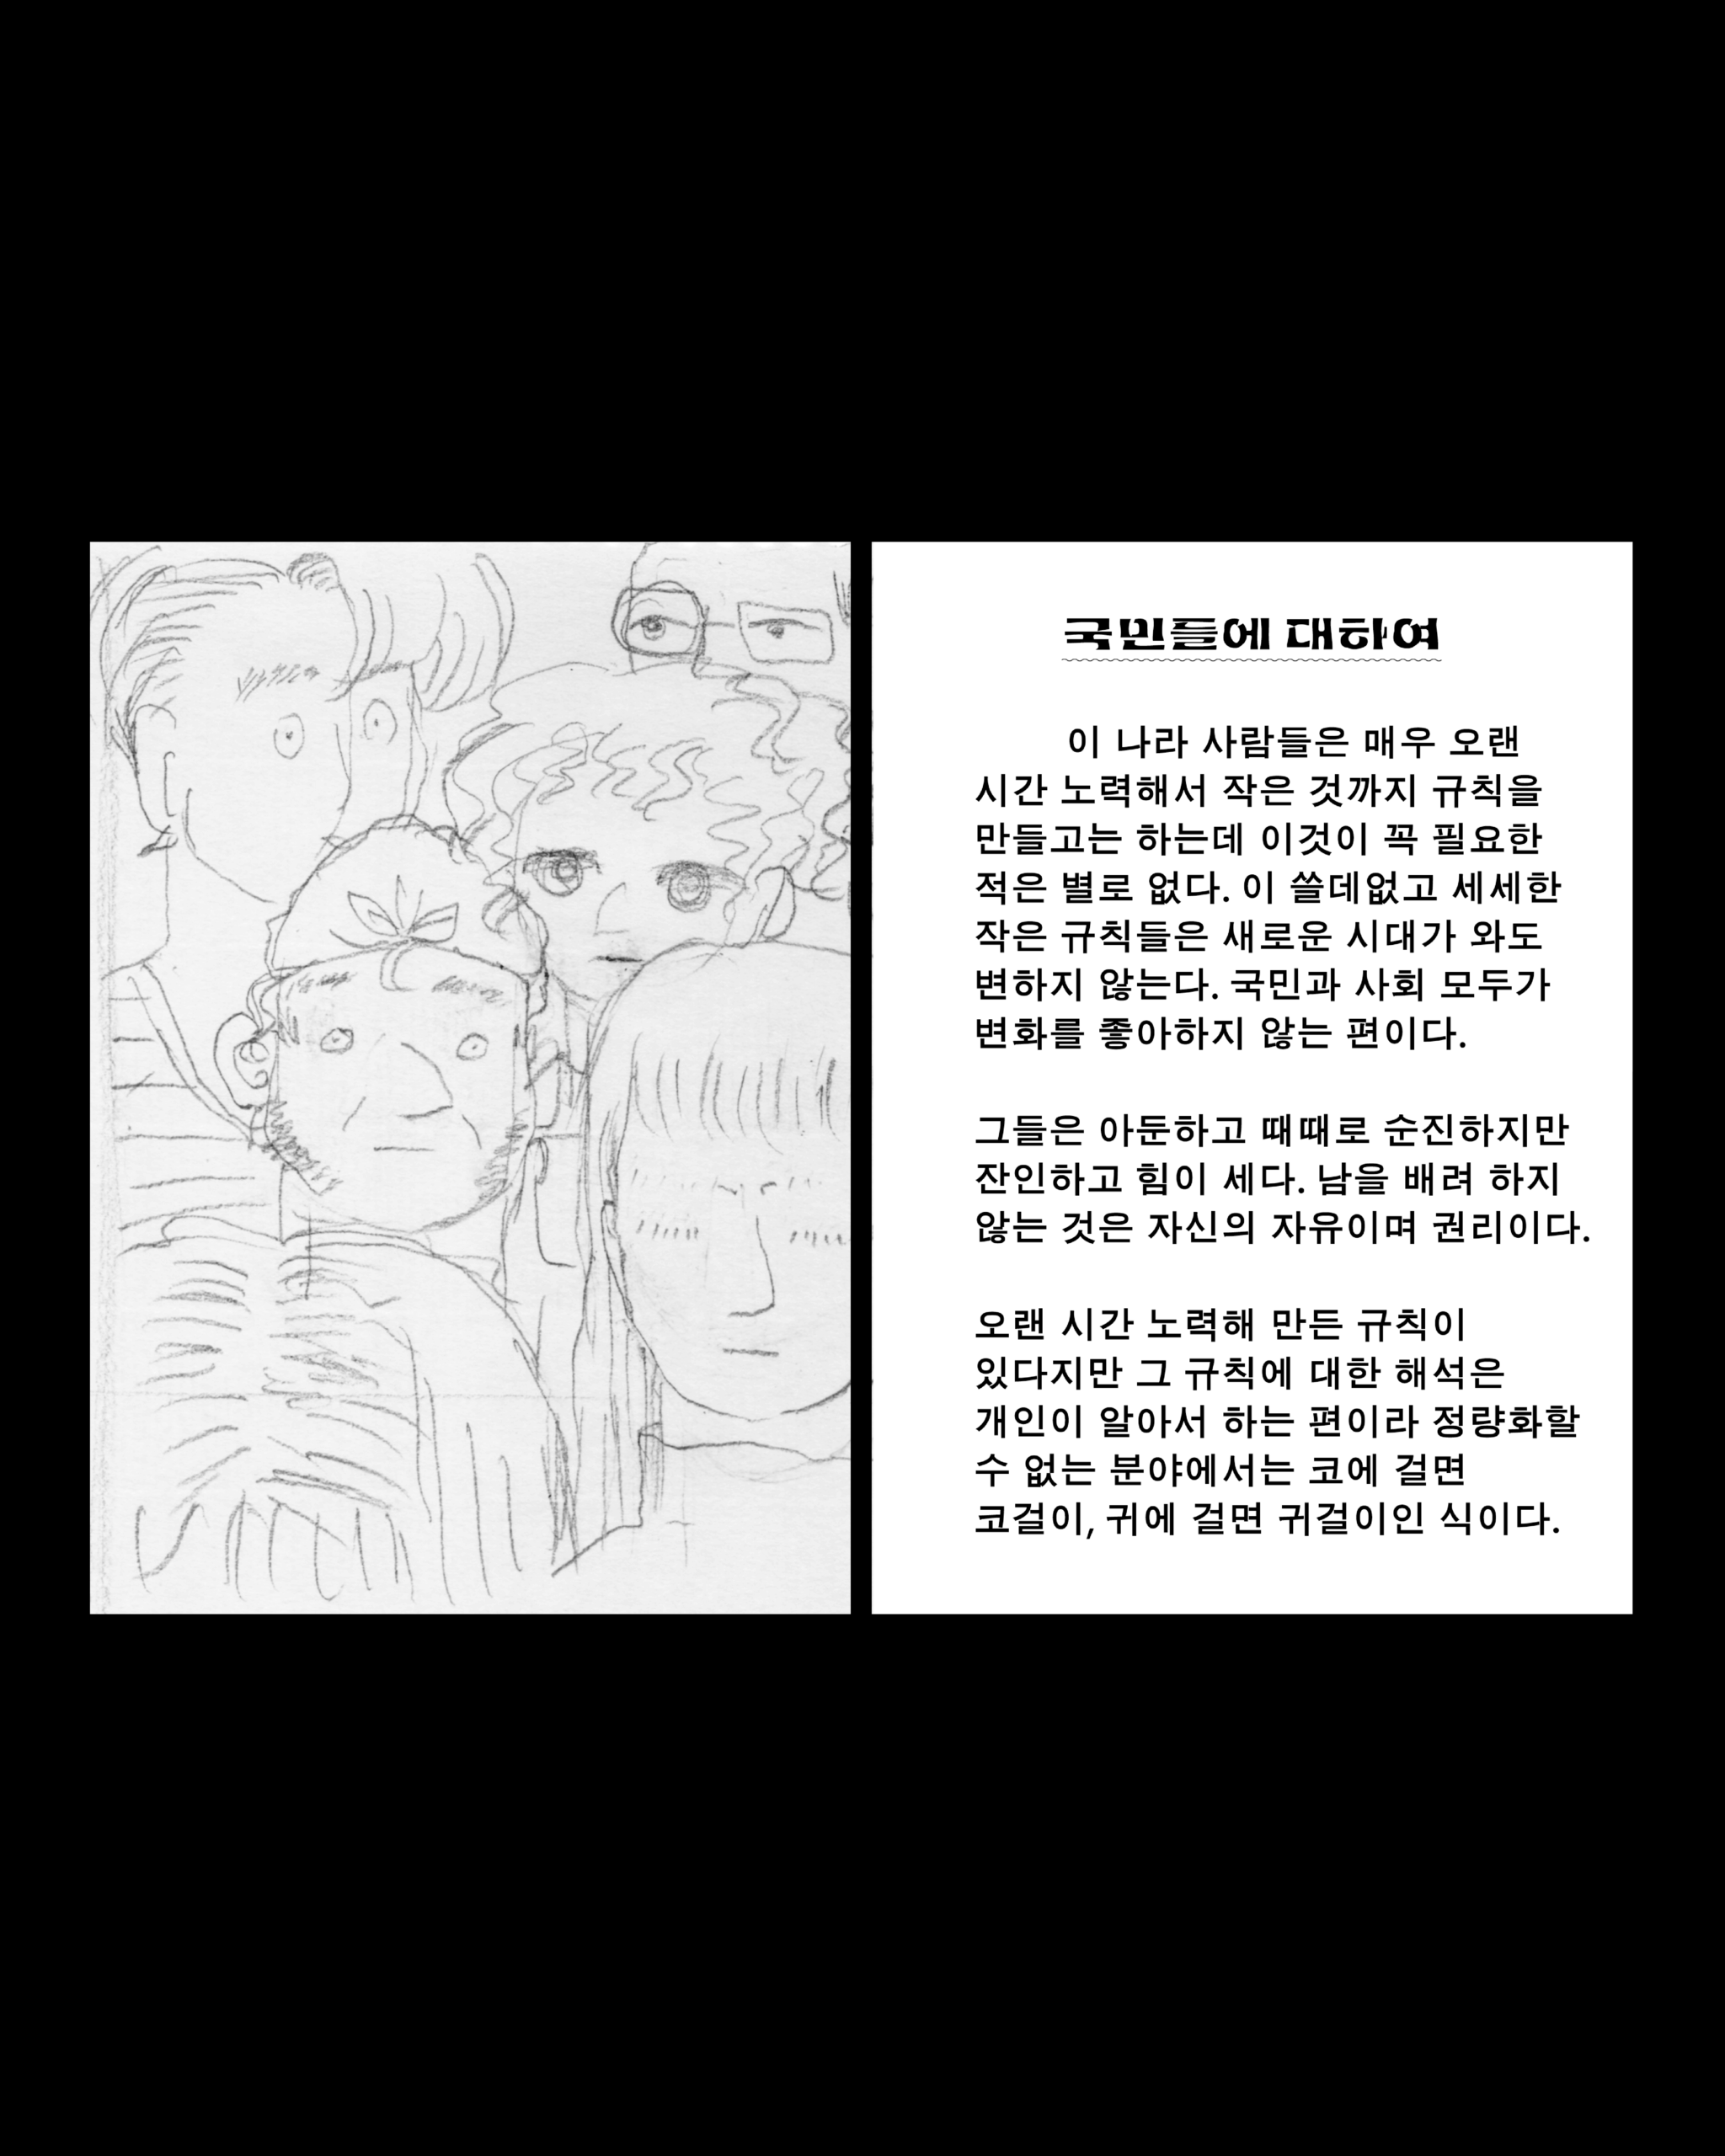 국민들에 대하여
이 나라 사람들은 매우 오랜
시간 노력해서 작은 것까지 규칙을
만들고는 하는데 이것이 꼭 필요한
적은 별로 없다. 이 쓸데없고 세세한
작은 규칙들은 새로운 시대가 와도
변하지 않는다. 국민과 사회 모두가
변화를 좋아하지 않는 편이다.
그들은 아둔하고 때때로 순진하지만
잔인하고 힘이 세다. 남을 배려 하지
않는 것은 자신의 자유이며 권리이다.
오랜 시간 노력해 만든 규칙이
있다지만 그 규칙에 대한 해석은
개인이 알아서 하는 편이라 정량화할
수 없는 분야에서는 코에 걸면
코걸이, 귀에 걸면 귀걸이인 식이다.